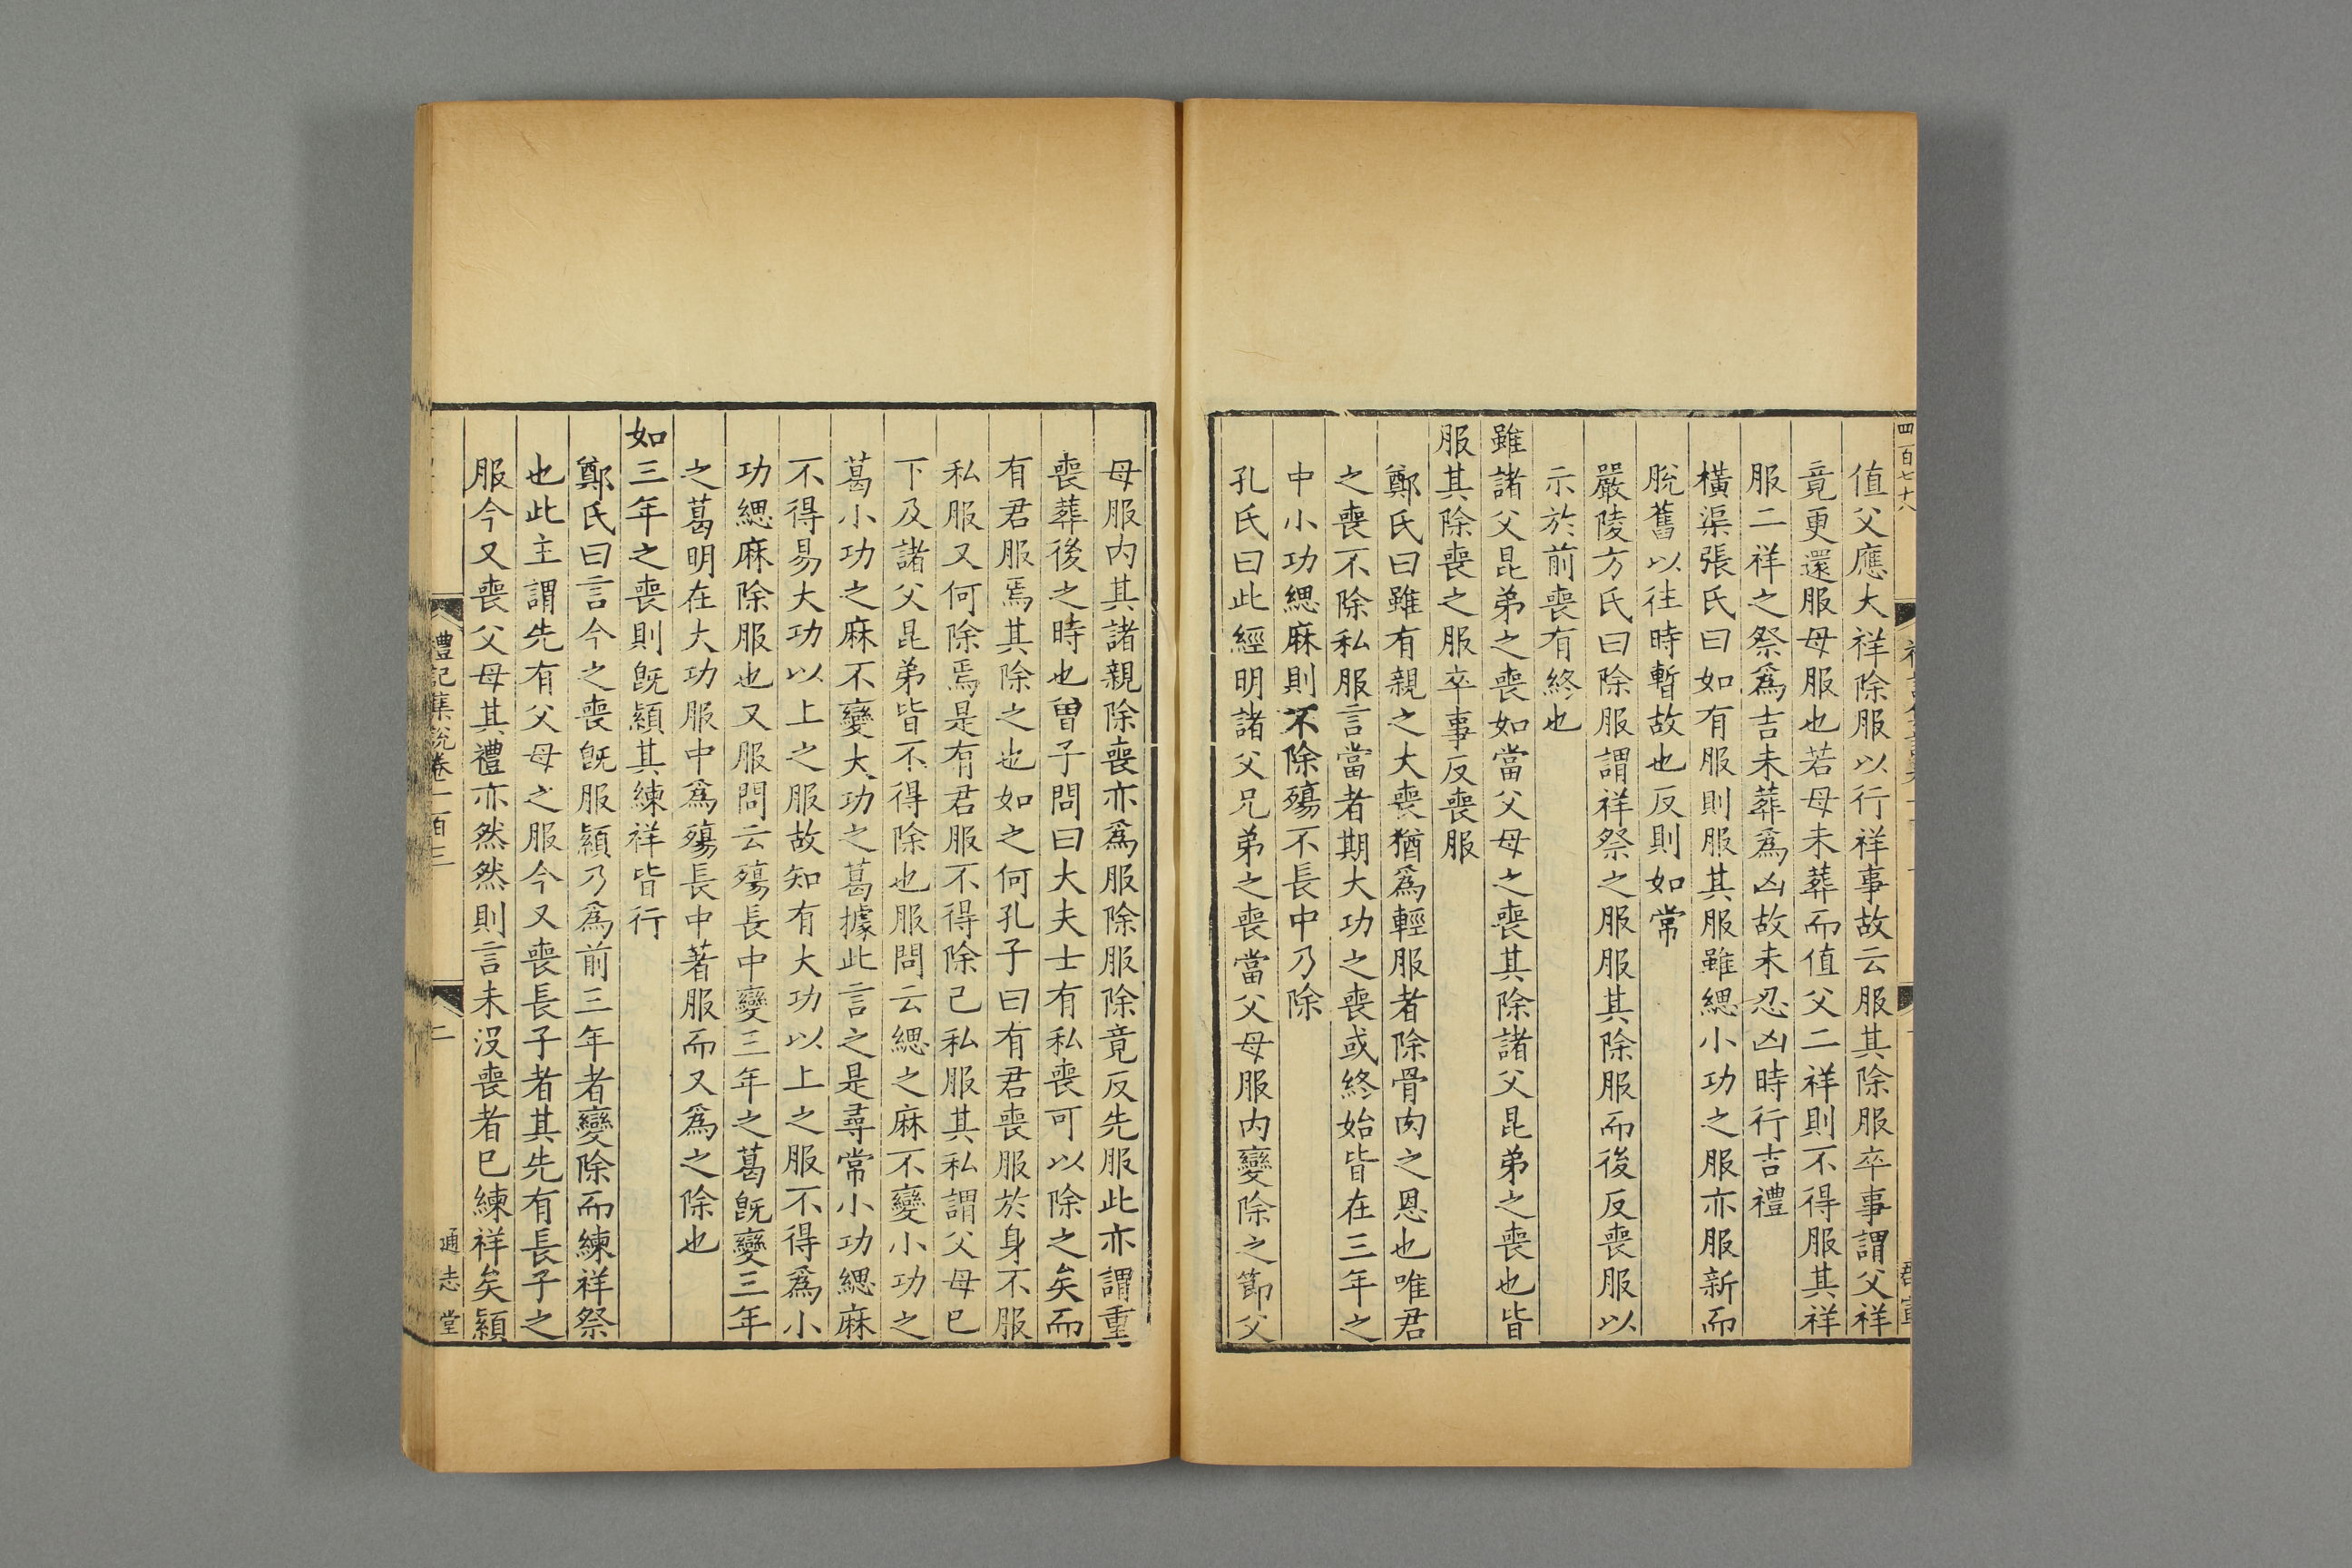 四百七十八
值父應大祥除服以行祥事故云服其除服卒事謂父祥
竟更還服母服也若母未葬而值父二祥則不得服其祥
服二祥之祭爲吉未葬爲凶故未忍凶時行吉禮
橫渠張氏曰如有服則服其服雖緦小功之服亦服新而
脫舊以往時暫故也反則如常
嚴陵方氏曰除服謂祥祭之服服其除服而後反喪服以
示於前喪有終也
雖諸父昆弟之喪如當父母之喪其除諸父昆弟之喪也皆
服其除喪之服卒事反喪服
鄭氏曰雖有親之大喪猶爲輕服者除骨肉之恩也唯君
之喪不除私服言當者期大功之喪或終始皆在三年之
中小功緦麻則不除殤不長中乃除
孔氏曰此經明諸父兄弟之喪當父母服內變除之節父
母服內其諸親除喪亦爲服除服除竟反先服此亦謂重
喪葬後之時也曾子問曰大夫士有私喪可以除之矣而
有君服焉其除之也如之何孔子曰有君喪服於身不服
私服又何除焉是有君服不得除己私服其私謂父母已
下及諸父昆弟皆不得除也服問云緦之麻不變小功之
葛小功之麻不變大功之葛據此言之是尋常小功緦麻
不得易大功以上之服故知有大功以上之服不得爲小
功緦麻除服也又服問云殤長中變三年之葛旣變三年
之葛明在大功服中爲殤長中著服而又爲之除也
如三年之喪則旣顈其練祥皆行
鄭氏曰言今之喪旣服顈乃爲前三年者變除而練祥祭
也此主謂先有父母之服今又喪長子者其先有長子之
服今又喪父母其禮亦然然則言未没喪者已練祥矣顈
禮記集說卷一百三
二
通志堂